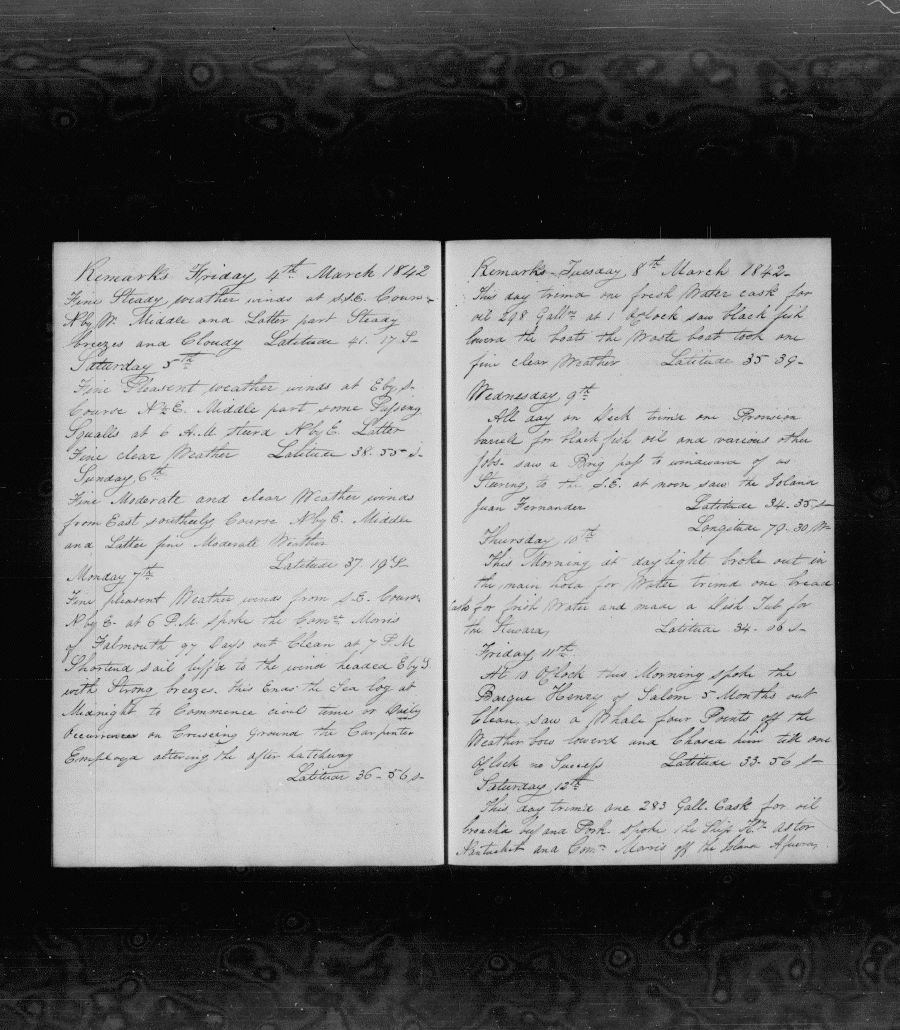 Remarks Friday 4th March 1842
Fine Steady weather winds at S.S.E. Course
N by W. Middle and Latter part Steady
breezes and Cloudy Latitude 41. 17 S
Satterday 5th
Fine Pleasent weather winds at E by S.
Course N.E. Middle part some Passing
Squalls at 6 A.M steerd N by E. Latter
Fine clear Weather Latitude 38. 55 S
Sunday 6th
Fine Moderate and clear Weather winds
from East southerly Course N by E. Middle
and Latter fine Moderate Weather
Latitude 37 19 S
Monday 7th
Fine plesent Weather winds from S.E. Course
N by E. at 6 P.M Spoke the Comre Morris
of Falmouth 97 Days out Clean at 7 P.M
Shortend sail luff'd to the wind headed E by S
with Strong breezes. this Ends the Sea log at
Midnight to Commence civil time or Daily
Occurrences on Cruseing Ground the Carpenter
Employd altering the after hatchway
Latitude 36 - 56 S
Remarks - Tuesday 8th March 1842 -
This day trimd one fresh Water cask for
oil 298 Galls at 1 O'clock saw black fish
lowerd the boats the Waste boat took one
fine clear Weather Latitude 35 39 -
Wednesday 9th
All day on Deck trimd one Provision
barrell for black fish oil and various other
Jobs. saw a Brig pass to windward of us
Stering to the S.E. at noon saw the Island
Juan Fernander Latitude 34 . 35 S
Longitude 79 . 30 W
Thursday 10th
This Morning at daylight broke out in
the main hold for Water trimd one bread
Cask for frish Water and made a Dish Tub for
the Steward, Latitude 34 . 06 S
Friday 11th
At 10 O'clock this Morning spoke the
Barque Henry of Salem 5 Months out
Clean, Saw a Whale four Points off the
Weather bow lowerd and Chased him till one
O'clock no Success Latitude 33 . 56 S
Saturday 12th
This day trim'd one 283 Gall. Cask for oil
broachd beef and Pork. Spoke the Ship Hy. Astor
Nantucket and Comr Morris off the Island